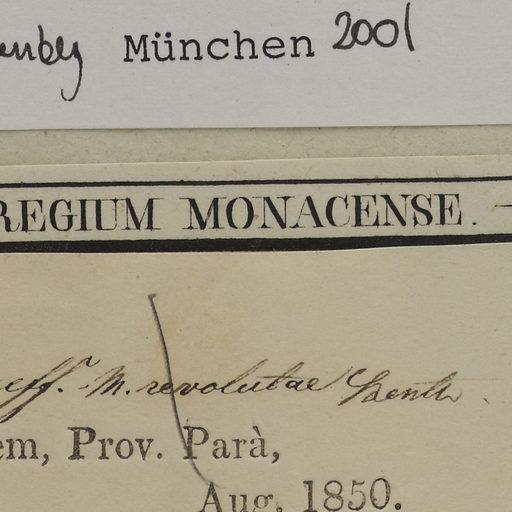 München 2001
REGIUM MONACENSE.
aff. M. revolutae Benth.
em, Prov. Parà,
Aug. 1850.